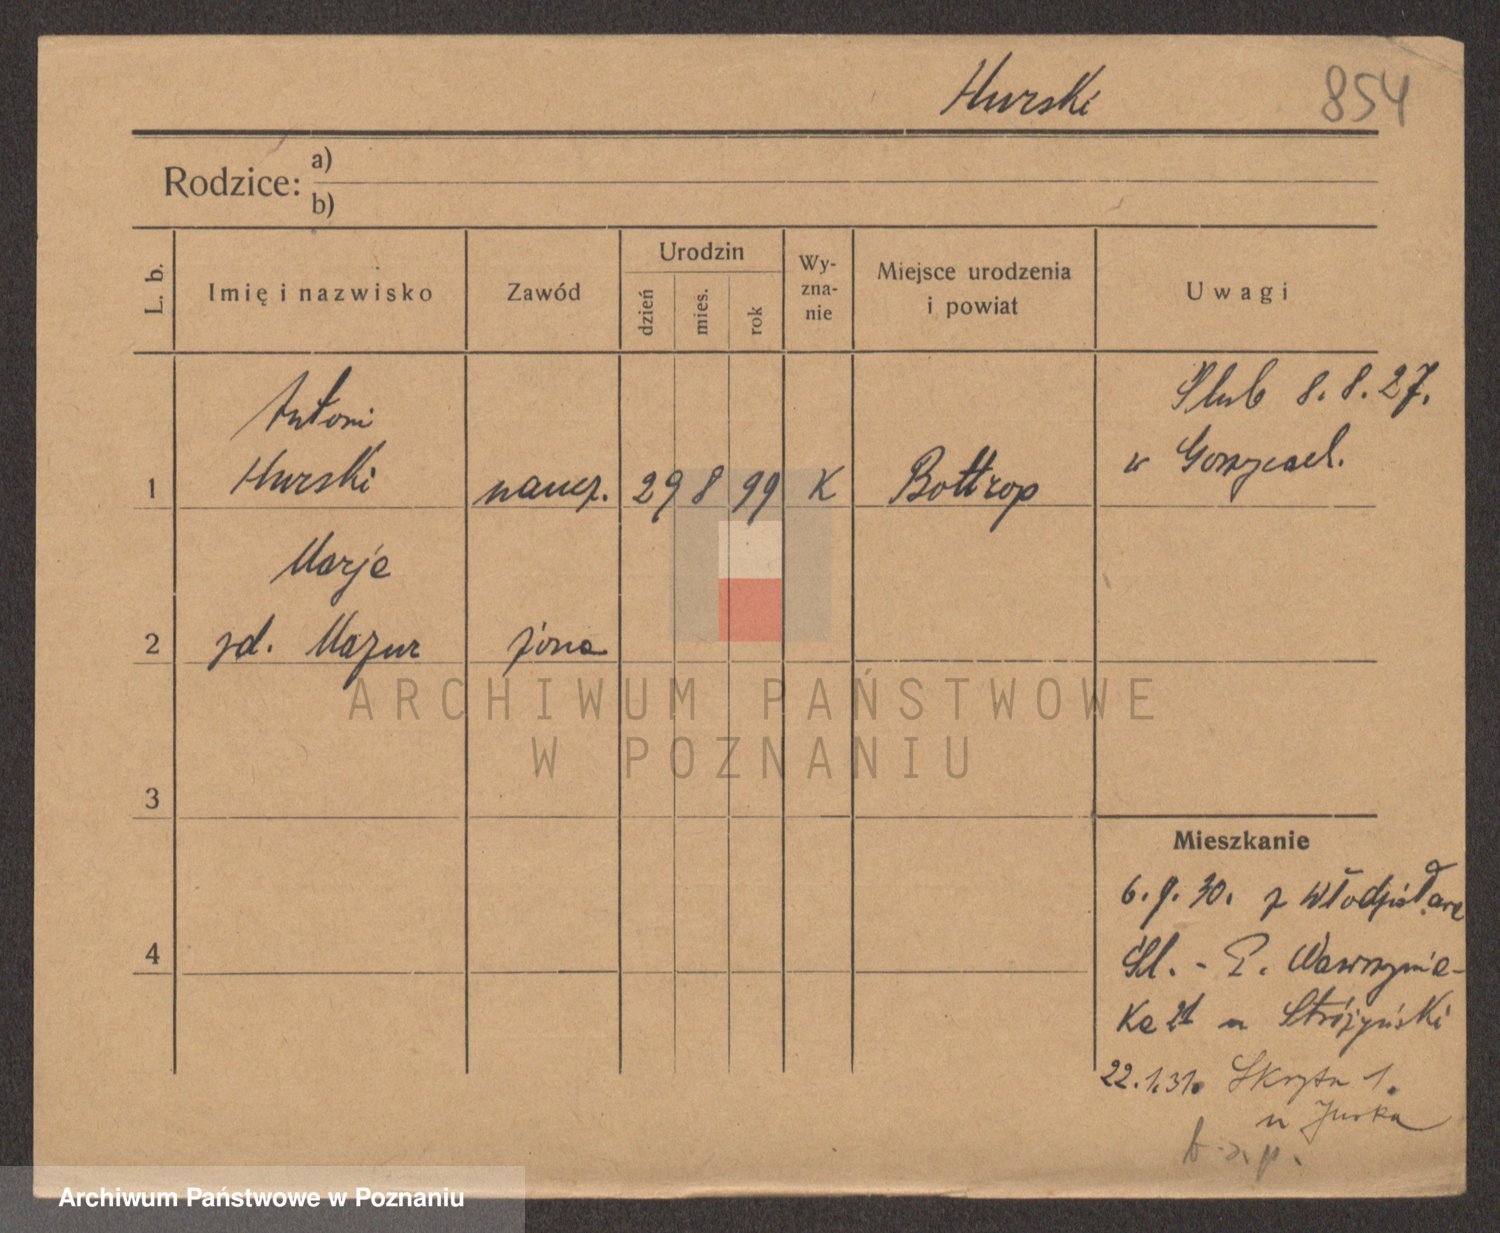 Hurski 854
Rodzice: a)
b)
L. b. Imię i nazwisko Zawód Urodzin dzień mies. rok Wy-zna-nie Miejsce urodzenia i powiat Uwagi
Antoni
Hurski
1 naucz. 29 8 99 K Bottrop
Ślub 8.8.27.
w
Marja
2 zd. Mazur żona
3
4
Mieszkanie
6.9.30. z
Śl. - P. Wawrzynia-
ka 21 u Stróżyński
22.1.31. Skryta 1.
u Jurka
ARCHIWUM PAŃSTWOWE
W POZNANIU
Archiwum Państwowe w Poznaniu